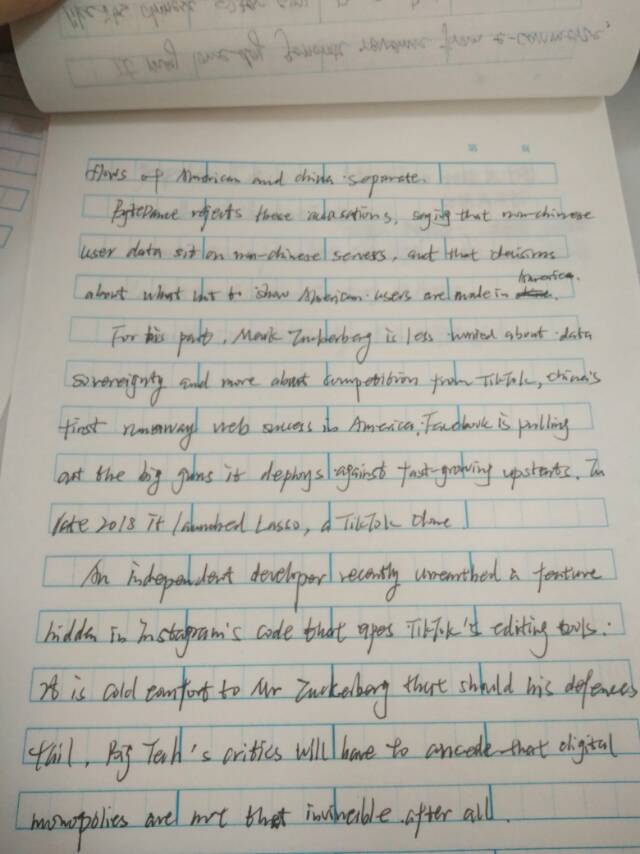 It may one day generate revenue from e-commerce,
第 页
flows of American and china separate.
ByteDance rejects these accusations, saying that non-chinese
user data sit on non-chinese servers, and that decisions
about what not to show American users are made in America.
For his part, Mark Zuckerberg is less worried about data
sovereignty and more about competition from TikTok, china's
first runaway web success in America. Facebook is pulling
out the big guns it deploys against fast-growing upstarts. In
late 2018 it launched Lasso, a TikTok clone.
An independent developer recently unearthed a feature
hidden in Instagram's code that apes TikTok's editing tools.
It is cold comfort to Mr Zuckerberg that should his defences
fail, Big Tech's critics will have to concede that digital
monopolies are not that invincible after all.